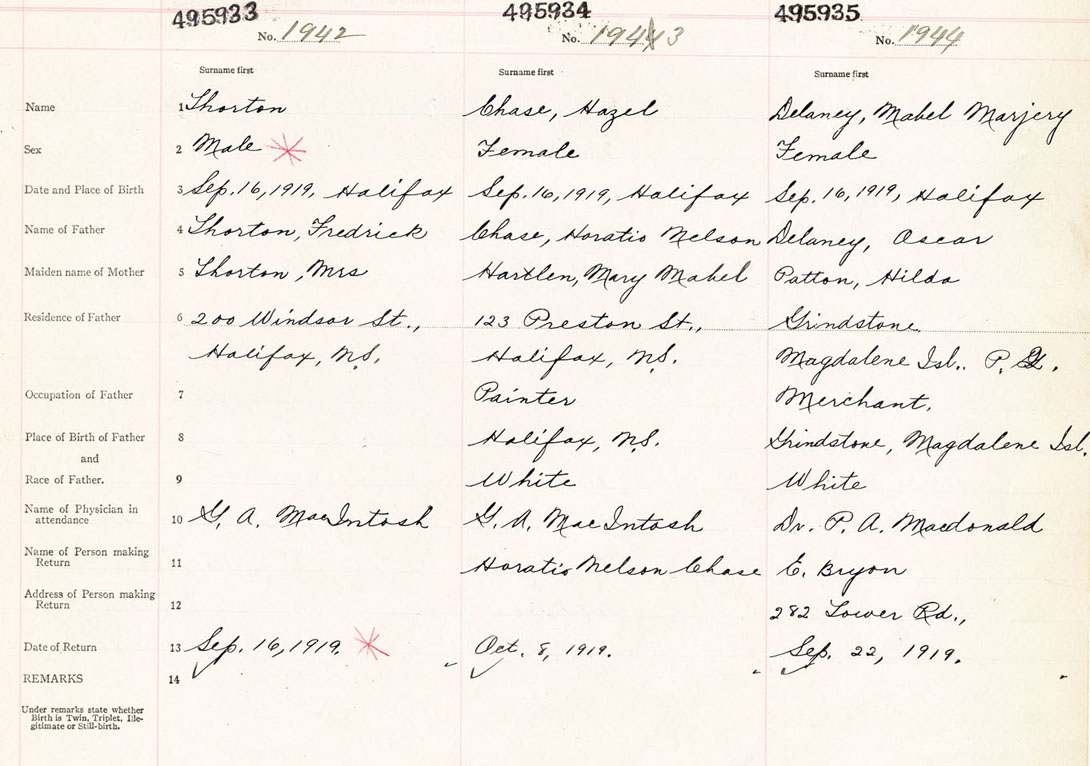 495933 495934 495935
No. 1942 No. 1943 No. 1944
Surname first Surname first Surname first
Name 1 Thorton Chase, Hazel Delaney, Mabel Marjery
Sex 2 Male Female Female
Date and Place of Birth 3 Sep. 16, 1919, Halifax Sep. 16, 1919, Halifax Sep. 16, 1919, Halifax
Name of Father 4 Thorton, Fredrick Chase, Horatio Nelson Delaney, Oscar
Maiden name of Mother 5 Thorton, Mrs Hartlen, Mary Mabel Patton, Hilda
Residence of Father 6 200 Windsor St., 123 Preston St., Grindstone
Halifax, N.S. Halifax, N.S. Magdalene Isl.. P.
Occupation of Father 7 Painter Merchant.
Place of Birth of Father 8 Halifax, N.S. Grindstone, Magdalene Isl.
and
Race of Father. 9 White White
Name of Physician in
attendance 10 G. A. MacIntosh G. A. MacIntosh Dr. P. A. Macdonald
Name of Person making
Return 11 Horatio Nelson Chase E. Bryon
Address of Person making
Return 12 282 Lower Rd.,
Date of Return 13 Sep. 16, 1919. Oct. 8, 1919. Sep. 22, 1919.
REMARKS 14
Under remarks state whether
Birth is Twin, Triplet, Ille-
gitimate or Still-birth.